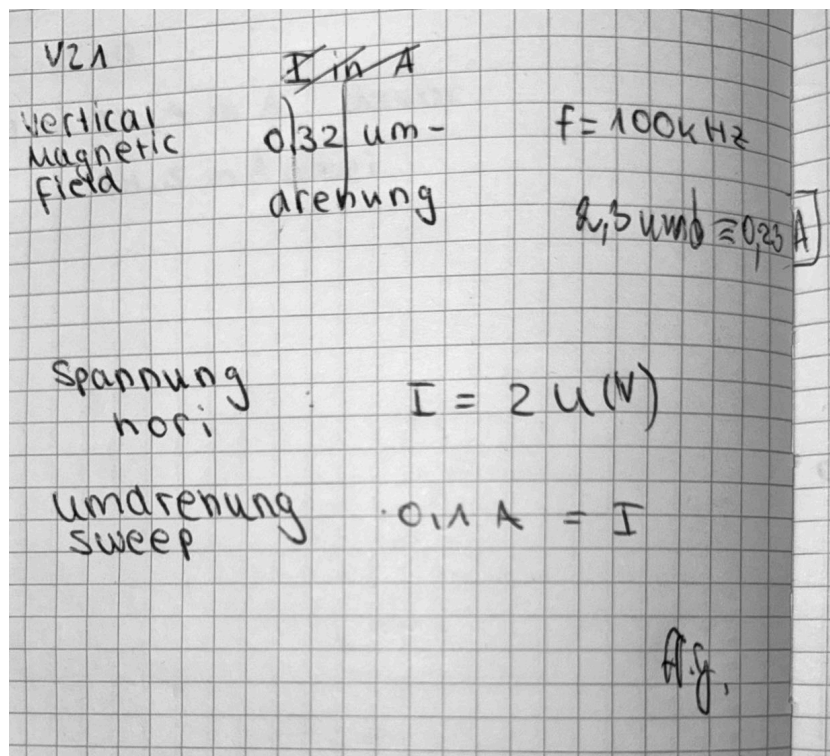 V21
I in A
vertical
Magnetic
field
0,32 um-
drehung
f = 100kHz
2,3 umd ≙ 0,23 A
Spannung
hori : I = 2 U(V)
umdrehung
sweep · 0,1 A = I
A.y.